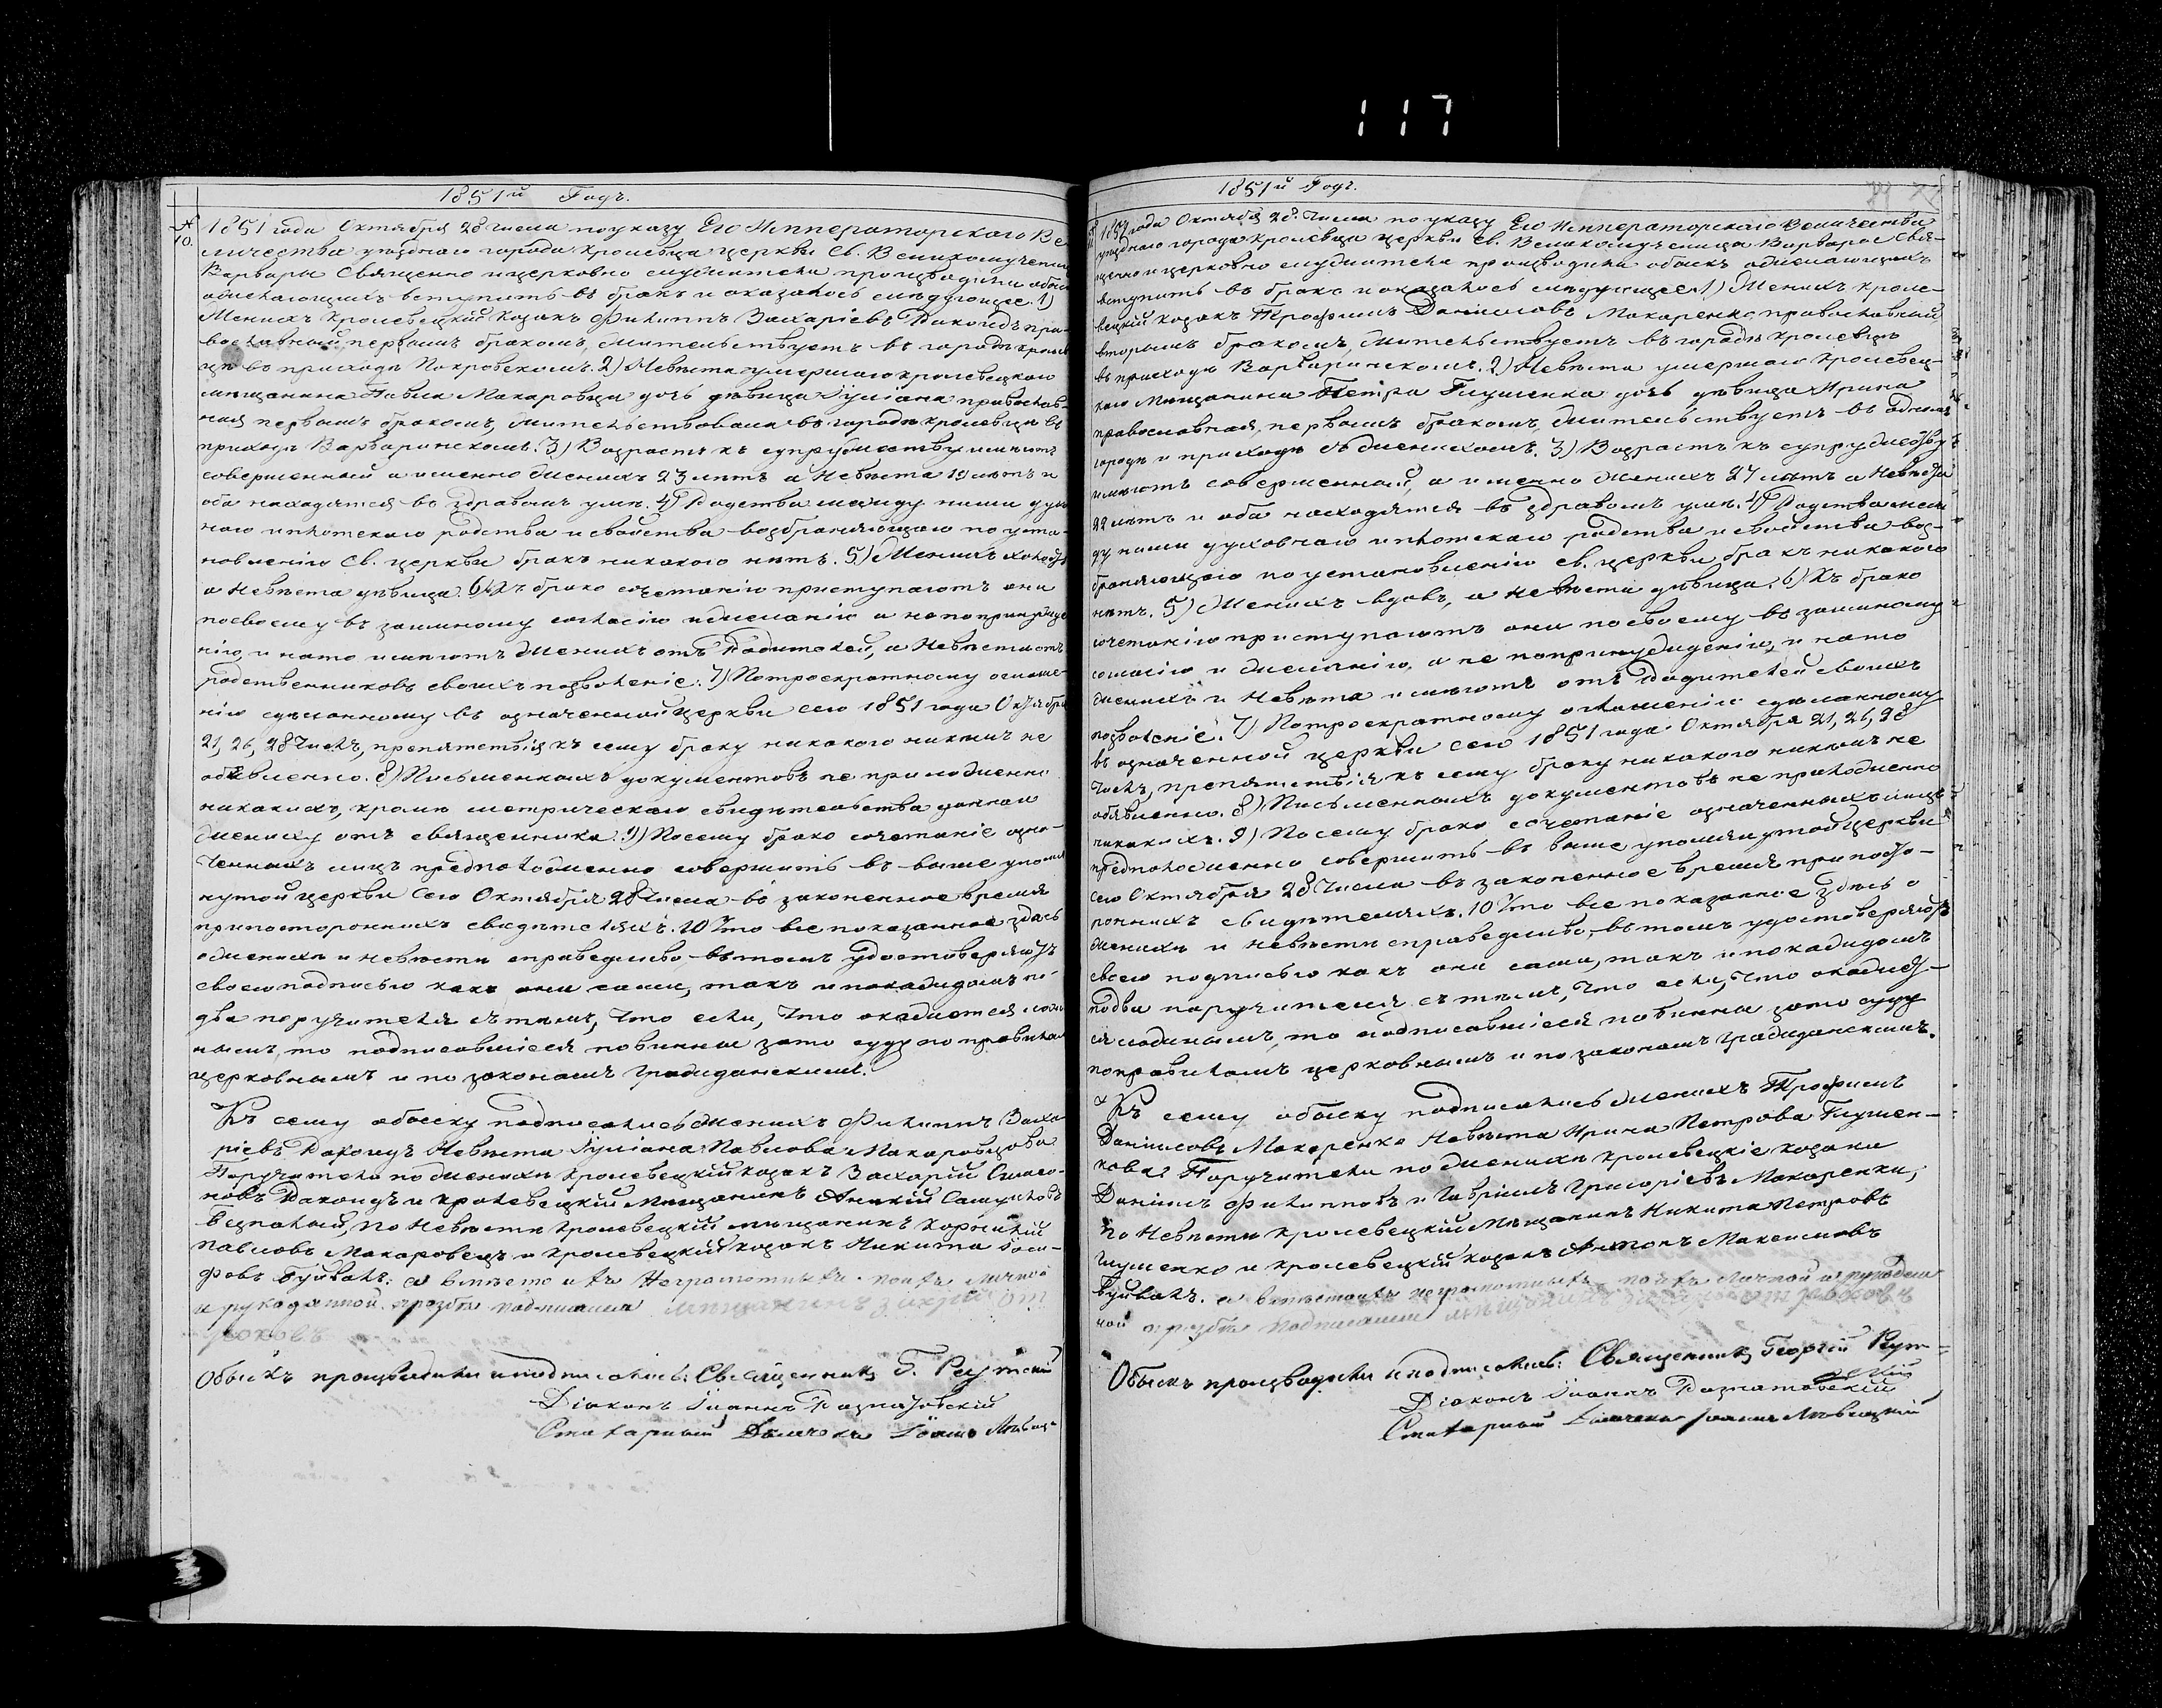 117
1851й Годъ.
№ 10.
1851 года Октября 28 числа по указу Его Императорскаго Ве-
личества уезднаго города Кролевца церкви Св. Великомученицы
Варвары Священно и церковно служители производили обыскъ
желающихъ вступить въ бракъ и оказалось слѣдующее. 1)
Женихъ Кролевецкій козакъ Филиппъ Захаріевъ пра-
вославный первымъ бракомъ, жительствуетъ въ городѣ Кролев-
цѣ въ приходѣ Покровскомъ. 2) Невѣста умершаго кролевецкаго
мѣщанина Павла Макаровца дочь дѣвица Іуліана православ-
ная первымъ бракомъ, жительствовала въ городѣ Кролевцѣ въ
приходѣ Варваринскомъ. 3) Возрастъ къ супружеству имѣютъ
совершенный а именно Женихъ 23 лѣтъ а Невѣста 19 лѣтъ и
оба находятся въ здравомъ умѣ. 4) Родства между ними духов-
наго и плотскаго родства и свойства возбраняющаго по уста-
новленію Св. церкви бракъ никакого нѣтъ. 5) Женихъ холостъ
а Невѣста дѣвица. 6) Къ брако сочетанію приступаютъ они
по своему взаимному согласію и желанію а не по принужде-
нію, и на то имѣютъ Женихъ отъ Родителей, а Невѣста отъ
родственниковъ своихъ позволеніе. 7) По троекратному оглаше-
нію сдѣланному въ означенной церкви сего 1851 года Октября
21, 26, 28 числъ, препятствія къ сему браку никакого никѣмъ не
объявлено. 8) Письменныхъ документовъ не приложено
никакихъ, кромѣ метрическаго свидѣтельства даннаго
Жениху отъ священника. 9) Посему брако сочетаніе озна-
ченныхъ лицъ предположенно совершить въ выше упомя-
нутой церкви Сего Октября 28 числа въ законенное время
при постороннихъ свидѣтеляхъ. 10 Что все показанное здѣсь
о женихѣ и невѣсти справедливо, въ томъ удостоверяютъ
своею подписью какъ они сами, такъ и по каждомъ по
два поручителя съ тѣмъ, что если, что окажется лож-
нымъ, то подписавшіеся повинны за то суду по правиламъ
церковнымъ и по законамъ Гражданскимъ.
Къ сему обыску подписались Женихъ Филиппъ Заха-
ріевъ Невѣста Іуліана Павлова Макаровцова
Поручители по Женихѣ Кролевецкій козакъ Захарій Симео-
новъ и Кролевецкій мѣщанинъ
по Невѣсти Кролевецкій мѣщанинъ Корнилій
Павловъ Макаровецъ и Кролевецкій козакъ Никита Іоси-
фовъ Гуйвакъ: а вместо ихъ Неграмотныхъ поихъ личной
и рукоданной прозбѣ подписался мѣщанинъ
Обыскъ производили и подписались: Священникъ Г. Реутскій
Діаконъ Іоаннъ
Дьячокъ Іоаннъ
1851й Годъ.
1851 года Октября 28. числа по указу Его Императорскаго Величества
уезднаго города Кролевца церкви Св. Великомученицы Варвары Свя-
щенно и церковно служители производили обыскъ желающихъ
вступить въ бракъ и оказалось слѣдующее. 1) Женихъ Кроле-
вецкій козакъ Трофимъ Даніиловъ Макаренко православный
вторымъ бракомъ, жительствуетъ въ городѣ Кролевцѣ
въ приходѣ Варваринскомъ. 2) Невѣста умершаго Кролевец-
каго Мѣщанина Петра Глушенка дочь дѣвица Ирина
православная, первымъ бракомъ, жительствуетъ въ одномъ
городѣ и приходѣ съ женихомъ. 3) Возрастъ къ супружеству
имѣютъ совершенный, а именно Женихъ 27 лѣтъ а Невѣста
22 лѣтъ и оба находятся въ здравомъ умѣ. 4) Родства меж-
ду ними духовнаго и плотскаго родства и свойства воз-
браняющаго по установленію св. церкви бракъ никакого
нѣтъ. 5) Женихъ вдовъ, а невѣста дѣвица. 6) Къ брако
сочетанію приступаютъ они по своему взаимному
согласію и желанію, а не по принужденію, и на то
женихъ и Невѣста имѣютъ отъ Родителей своихъ
позволеніе. 7) По троекратному оглашенію сдѣланному
въ означенной церкви сего 1851 года Октября 21, 26, 28
числъ, препятствія къ сему браку никакого никѣмъ не
объявленно. 8) Письменныхъ документовъ не приложенно
никакихъ. 9) Посему брако сочетаніе означенныхъ лицъ
предположенно совершить въ выше упомянутой церкви
сего Октября 28 числа въ законенное время при посто-
роннихъ свидѣтеляхъ. 10 Что все показанное здѣсь о
женихѣ и невѣсти справедливо, въ томъ удостоверяютъ
своею подписью какъ они сами, такъ и по каждомъ
по два поручителя съ тѣмъ, что если, что окажет-
ся ложнымъ, то подписавшіеся повинны за то суду
по правиламъ церковнымъ и по законамъ Гражданскимъ.
Къ сему обыску подписались Женихъ Трофимъ
Даніиловъ Макаренко Невѣста Ирина Петрова Глушен-
кова: Поручители по Женихѣ Кролевецкіе козаки
Даніилъ Филипповъ и Гавріилъ Григоріевъ Макаренки,
по Невѣсти Кролевецкій Мѣщанинъ Никита Петровъ
Глушенко и Кролевецкій козакъ Антонъ Максимовъ
Гуйвакъ. а вместоихъ неграмотныхъ поихъ личной и рукодан-
ной прозбѣ подписался мѣщанинъ
Обыскъ производили и подписались: Священникъ Георгій Реут-
скій
Діаконъ Іоаннъ
Дьячокъ Іоаннъ